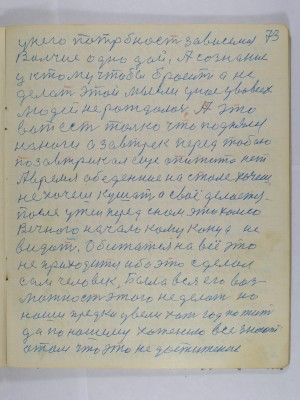 у него потребност зависима 73
Волчие одно дай, А сознание
у к тому чтобы бросить а не
делат этой мысли у нас у всех
людей не рождалос, А это
вот ест только что поднялис
на ноги а завтрак перед тобою
позавтракал еще аппетита нет
А время обеденние на столе хочеш
не хочеш кушат, а своё делаеш,
после ужен перед сном это колесо
Вечного начало кому конца не
видат. Обижатся на всё это
не приходится ибо это сделал
сам человек, Была вся его воз-
можност этого не делат но
наши предки увели хот год пожит
да по нашему хотению все знают
о том что это не достижение